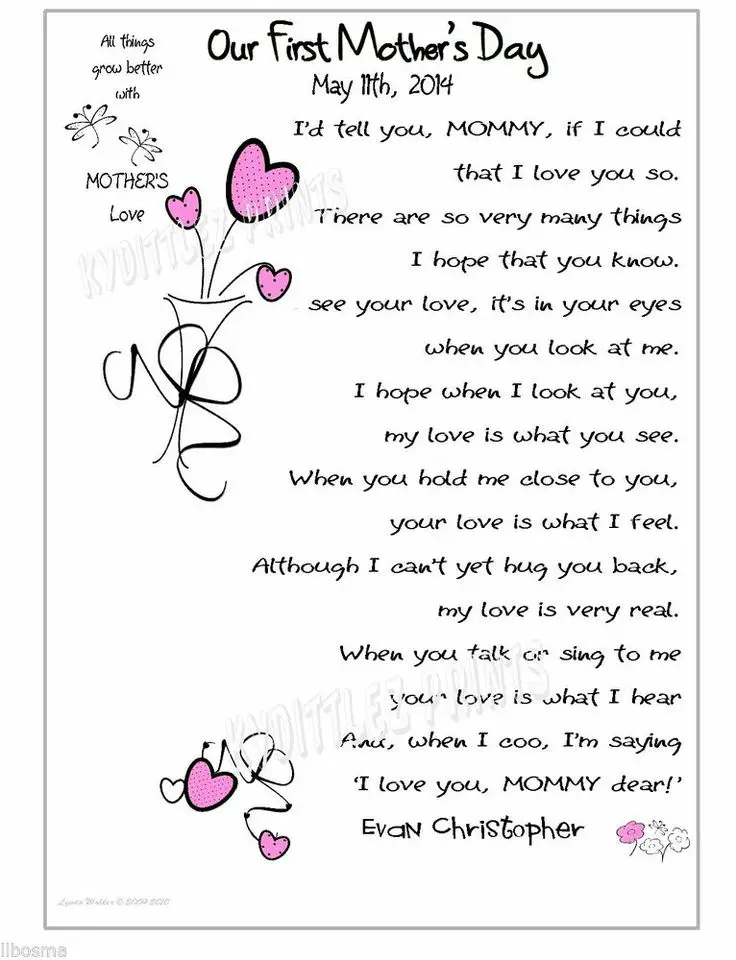 All things
grow better
with
MOTHER'S
Love
Our First Mother's Day
May 11th, 2014
I'd tell you, MOMMY, if I could
that I love you so.
There are so very many things
I hope that you know.
see your love, it's in your eyes
when you look at me.
I hope when I look at you,
my love is what you see.
When you hold me close to you,
your love is what I feel.
Although I can't yet hug you back,
my love is very real.
When you talk or sing to me
your love is what I hear
And, when I coo, I'm saying
'I love you, MOMMY dear!'
Evan Christopher
KYDITTLEZ PRINTS
KYDITTLEZ PRINTS
Lynda Walker © 2004-2010
llbosma